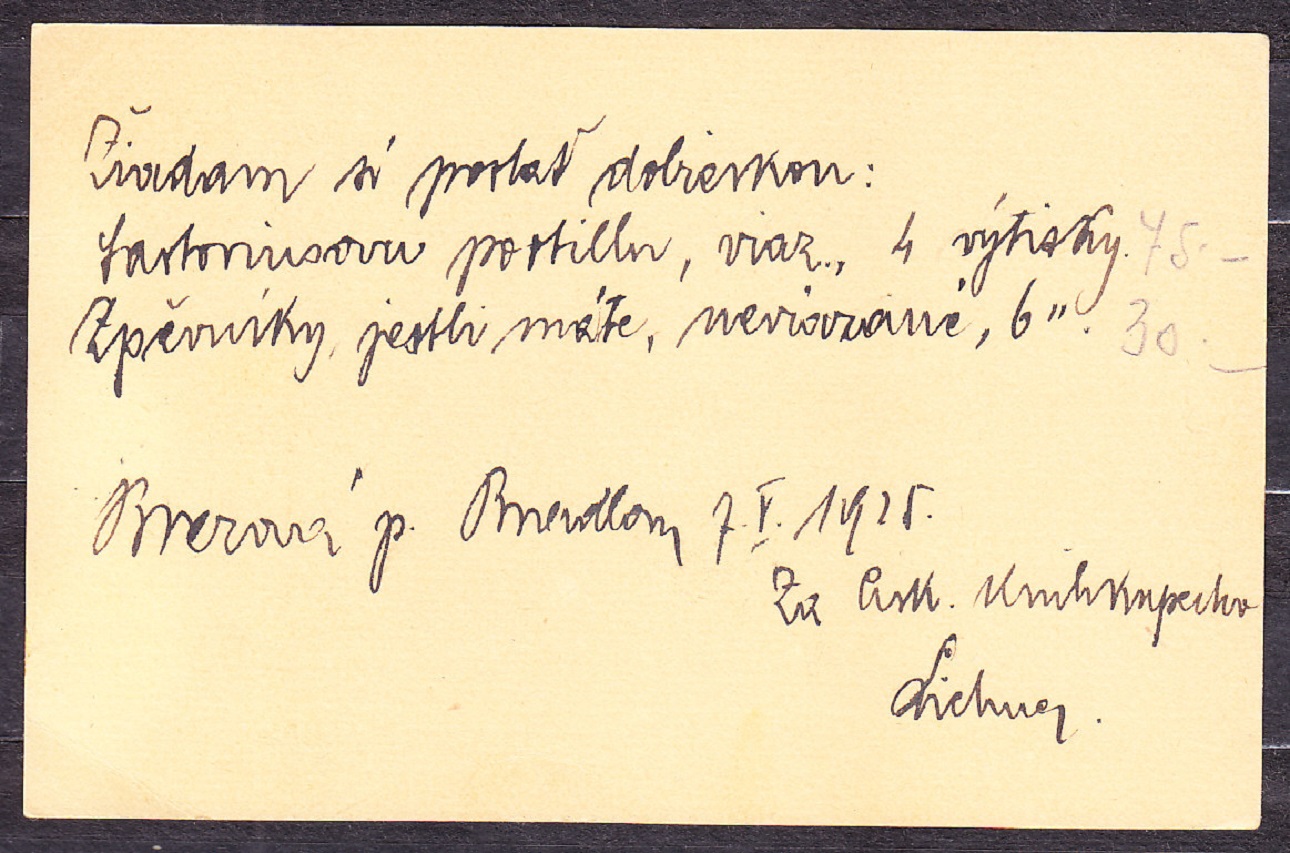 Žiadam si poslať dobierkou:
Sartoriusovu postillu, viaz., 4 výtisky. 75.-
Zpěvníky, jestli máte, neviazané, 6 ". 30.-
Brezová p. Bradlom 7.V. 1925.
Za Cirk. kníhkupectvo
Lichner.